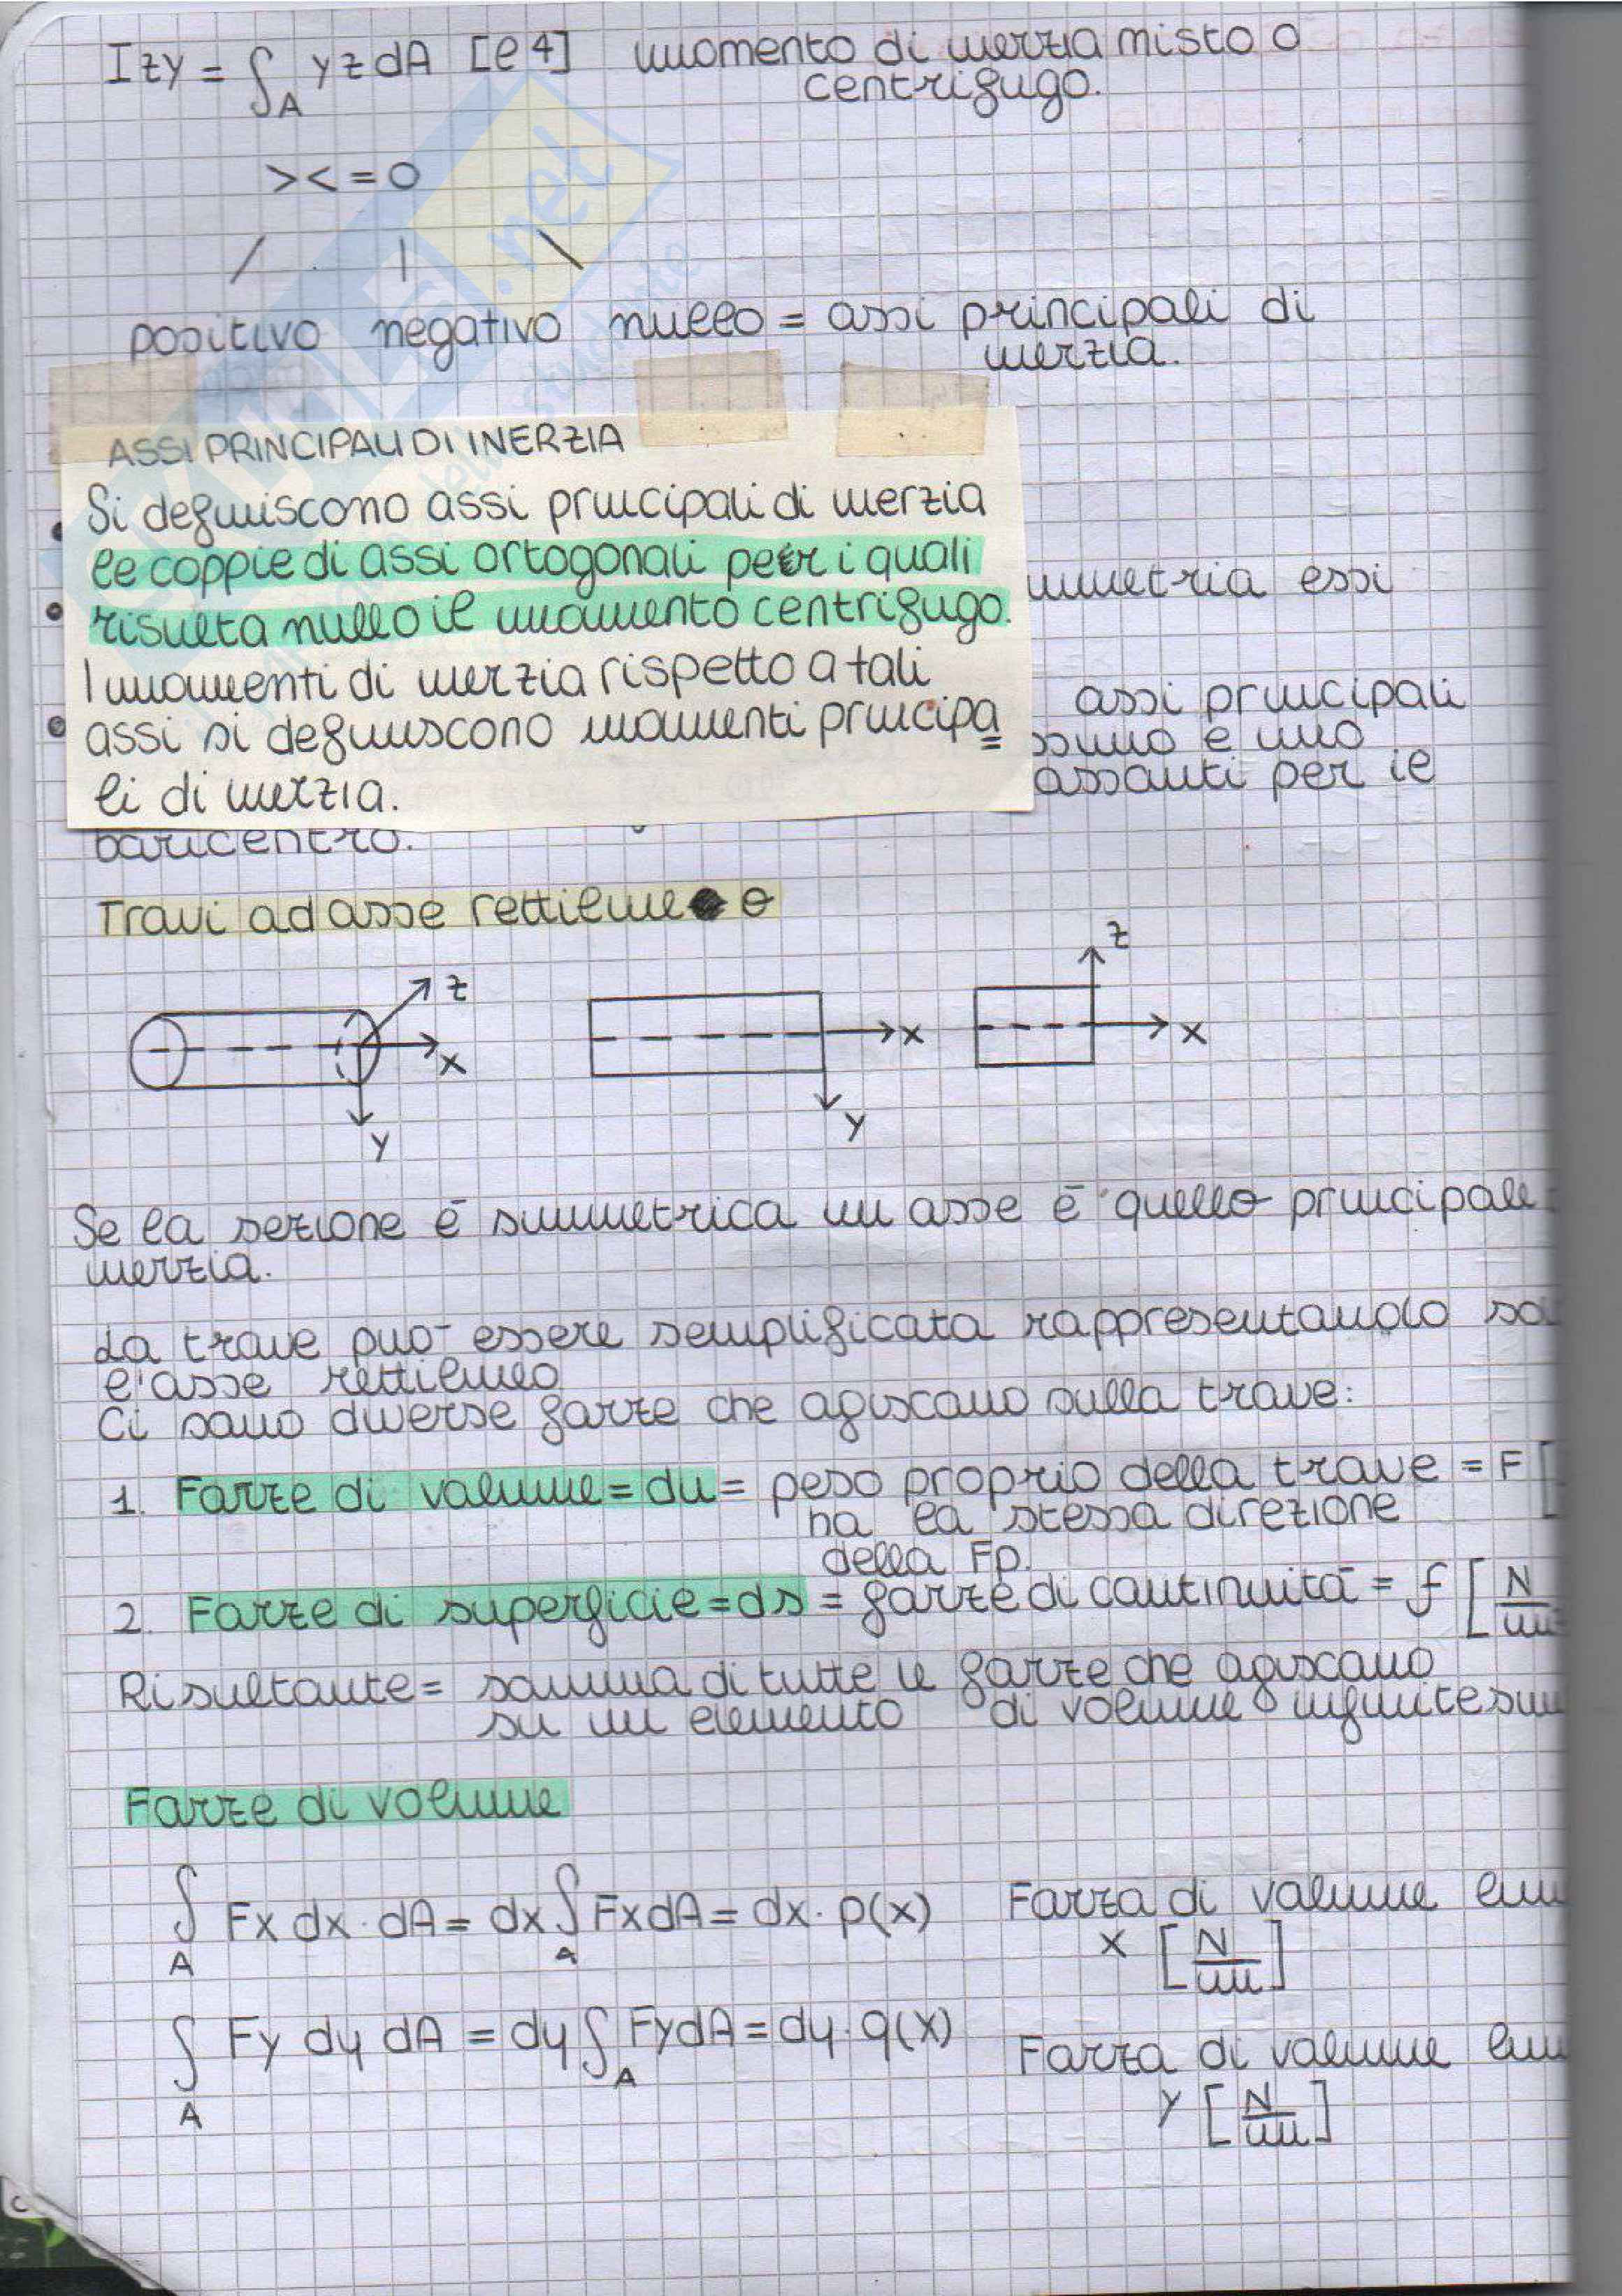 Izy = ∫A yz dA [l4] momento di inerzia misto o
centrifugo.
><=0
/ | \
positivo negativo nullo = assi principali di
inerzia.
ASSI PRINCIPALI DI INERZIA
Si definiscono assi principali di inerzia
le coppie di assi ortogonali per i quali
risulta nullo il momento centrifugo.
I momenti di inerzia rispetto a tali
assi si definiscono momenti principa=
li di inerzia.
mmetria essi
assi principali
ssimo e uno
assanti per il
baricentro.
Travi ad asse rettilineo
z
x
y
x
y
z
x
Se la sezione è simmetrica un asse è quello principale
inerzia.
La trave può essere semplificata rappresentando so
l'asse rettilineo
Ci sono diverse forze che agiscono sulla trave:
1. Forze di volume = du = peso proprio della trave = F [
ha la stessa direzione
della Fp.
2. Forze di superficie = ds = forze di continuità = f [N/m
Risultante = somma di tutte le forze che agiscono
su un elemento di volume infinitesim
Forze di volume
∫A Fx dx · dA = dx ∫A Fx dA = dx · p(x) Forza di volume lun
x [N/m]
∫A Fy dy dA = dy ∫A Fy dA = dy · q(x) Forza di volume lun
y [N/m]